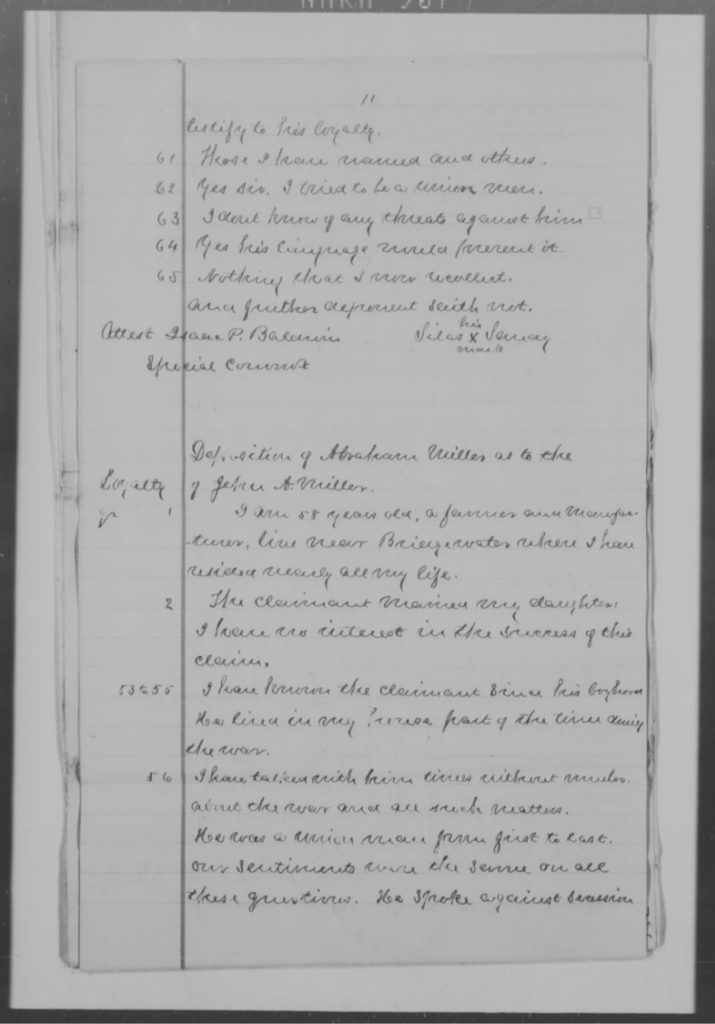 11
testify to his loyalty.
61 Those I have named and others.
62 Yes sir. I tried to be a union man.
63 I dont know of any threats against him
64 Yes his language would prevent it.
65 Nothing that I now recollect.
and further deponent saith not.
Attest Isaac P. Baldwin Silas his X mark
Special Commr
Deposition of Abraham Miller as to the
Loyalty of John A. Miller.
qr 1 I am 58 years old, a farmer and manufac-
-turer, live near Bridgewater where I have
resided nearly all my life.
2 The claimant married my daughter.
I have no interest in the success of this
claim.
53 to 55 I have known the claimant since his boyhood
He lived in my house part of the time during
the war.
56 I have talked with him times without number
about the war and all such matters.
He was a union man from first to last.
our sentiments were the same on all
these questions. He spoke against secession